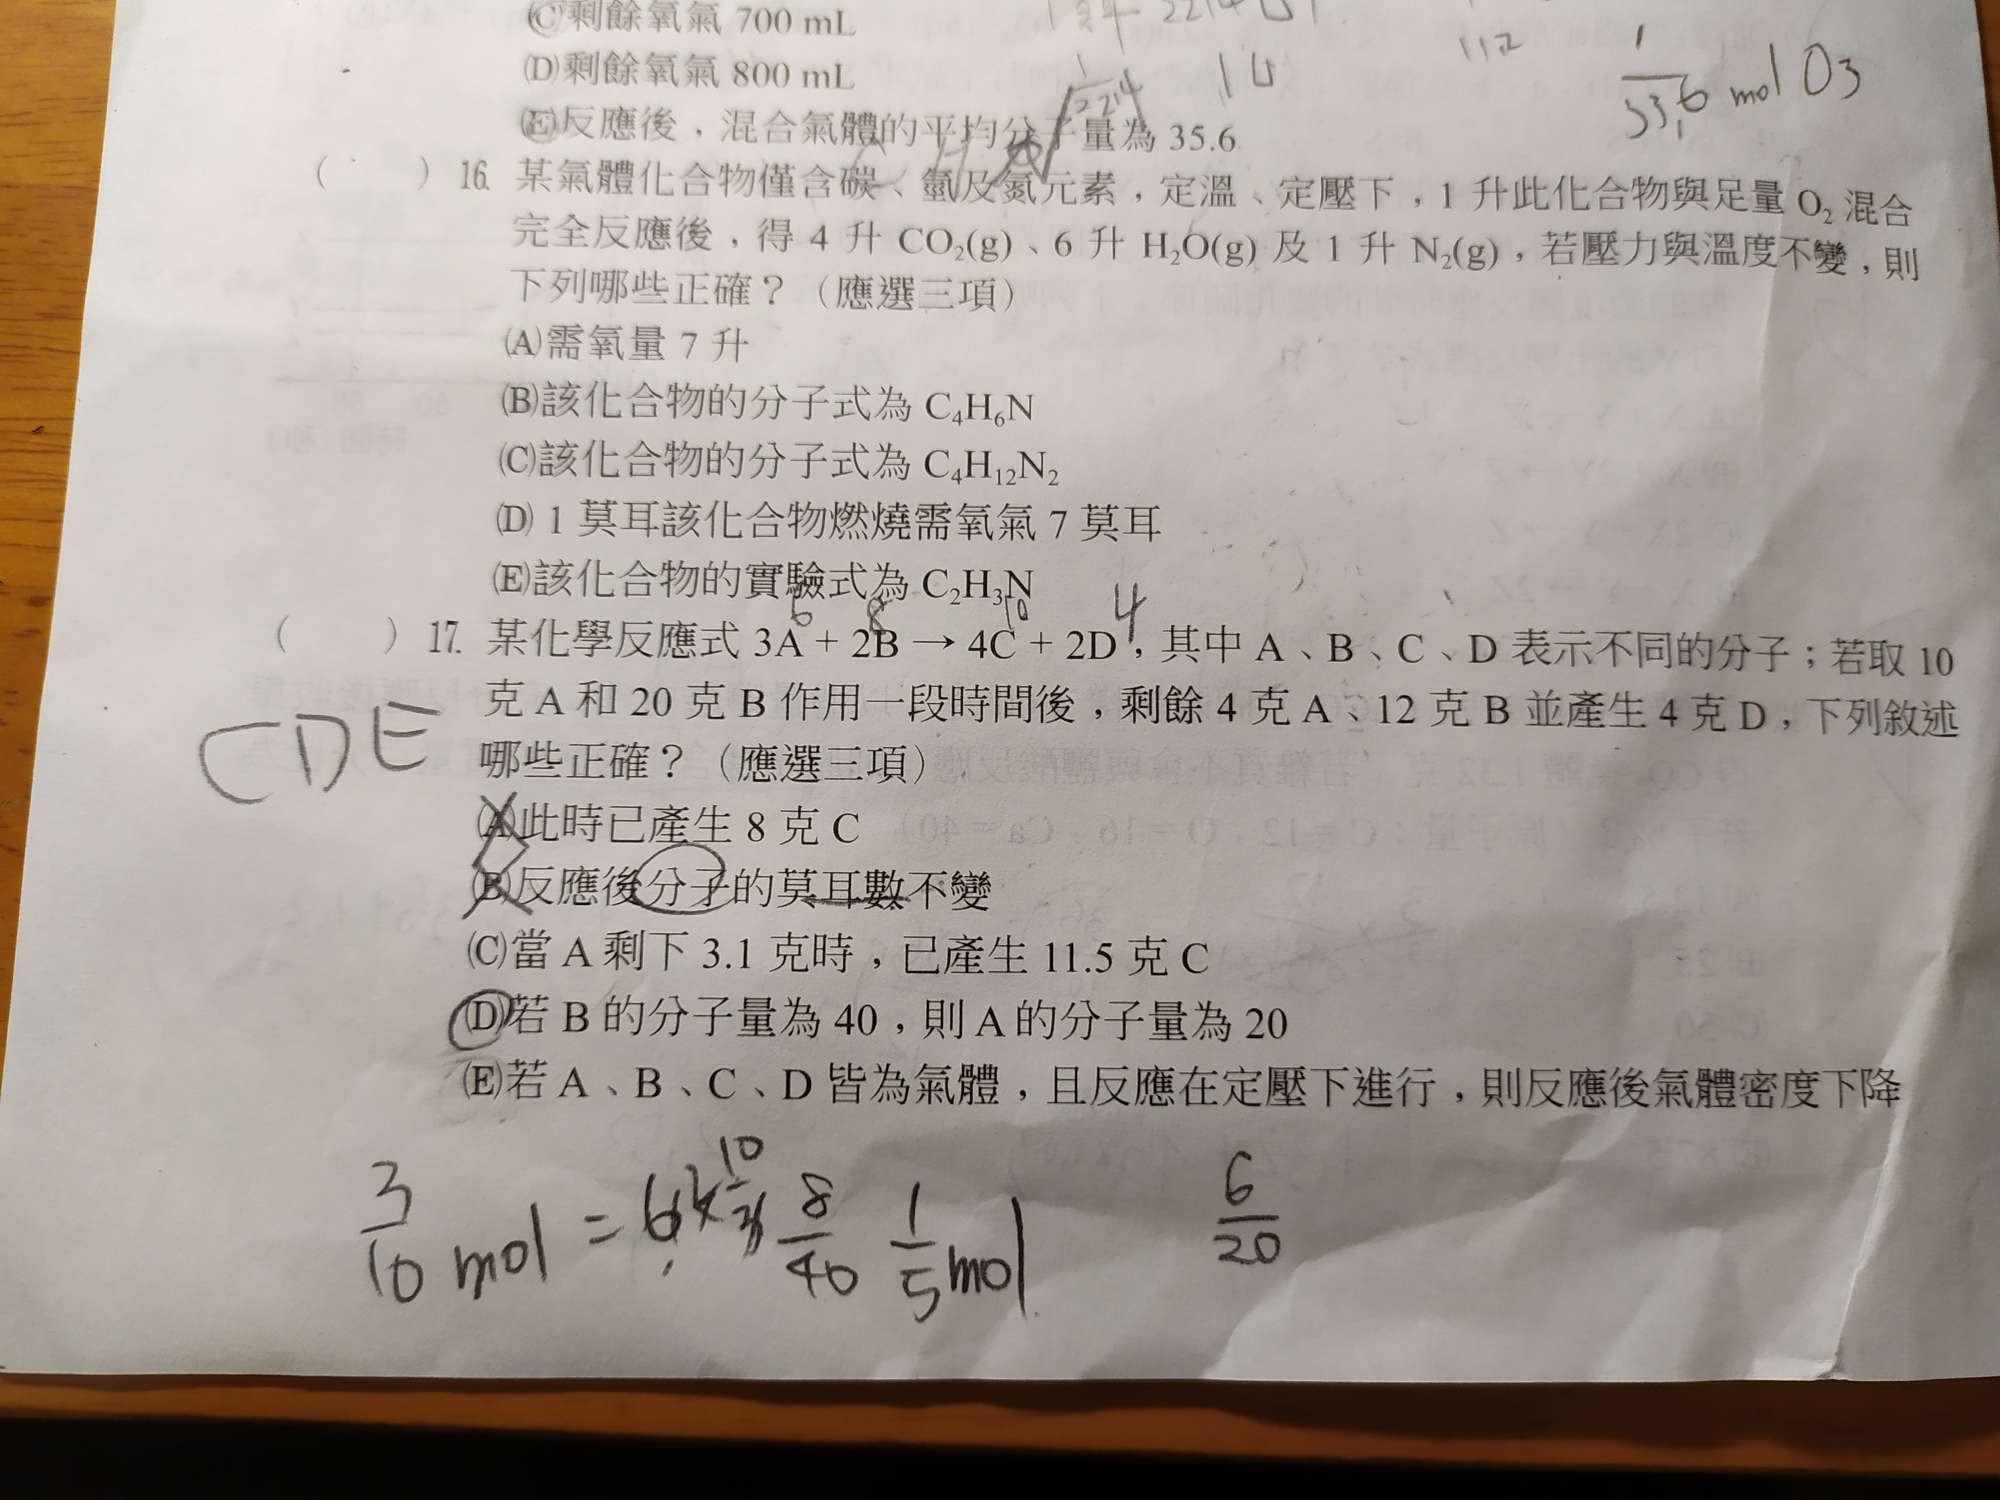 (C)剩餘氧氣 700 mL
(D)剩餘氧氣 800 mL
(E)反應後，混合氣體的平均分子量為 35.6
112
14
1/33.6 mol O3
(　) 16. 某氣體化合物僅含碳、氫及氮元素，定溫、定壓下，1 升此化合物與足量 O₂ 混合
完全反應後，得 4 升 CO₂(g)、6 升 H₂O(g) 及 1 升 N₂(g)，若壓力與溫度不變，則
下列哪些正確？（應選三項）
(A)需氧量 7 升
(B)該化合物的分子式為 C₄H₆N
(C)該化合物的分子式為 C₄H₁₂N₂
(D) 1 莫耳該化合物燃燒需氧氣 7 莫耳
(E)該化合物的實驗式為 C₂H₃N
6 8 10 4
(　) 17. 某化學反應式 3A + 2B → 4C + 2D，其中 A、B、C、D 表示不同的分子；若取 10
克 A 和 20 克 B 作用一段時間後，剩餘 4 克 A、12 克 B 並產生 4 克 D，下列敘述
哪些正確？（應選三項）
CDE
(A)此時已產生 8 克 C
(B)反應後分子的莫耳數不變
(C)當 A 剩下 3.1 克時，已產生 11.5 克 C
(D)若 B 的分子量為 40，則 A 的分子量為 20
(E)若 A、B、C、D 皆為氣體，且反應在定壓下進行，則反應後氣體密度下降
3/10 mol = 6 × 10/3 8/40 1/5 mol 6/20